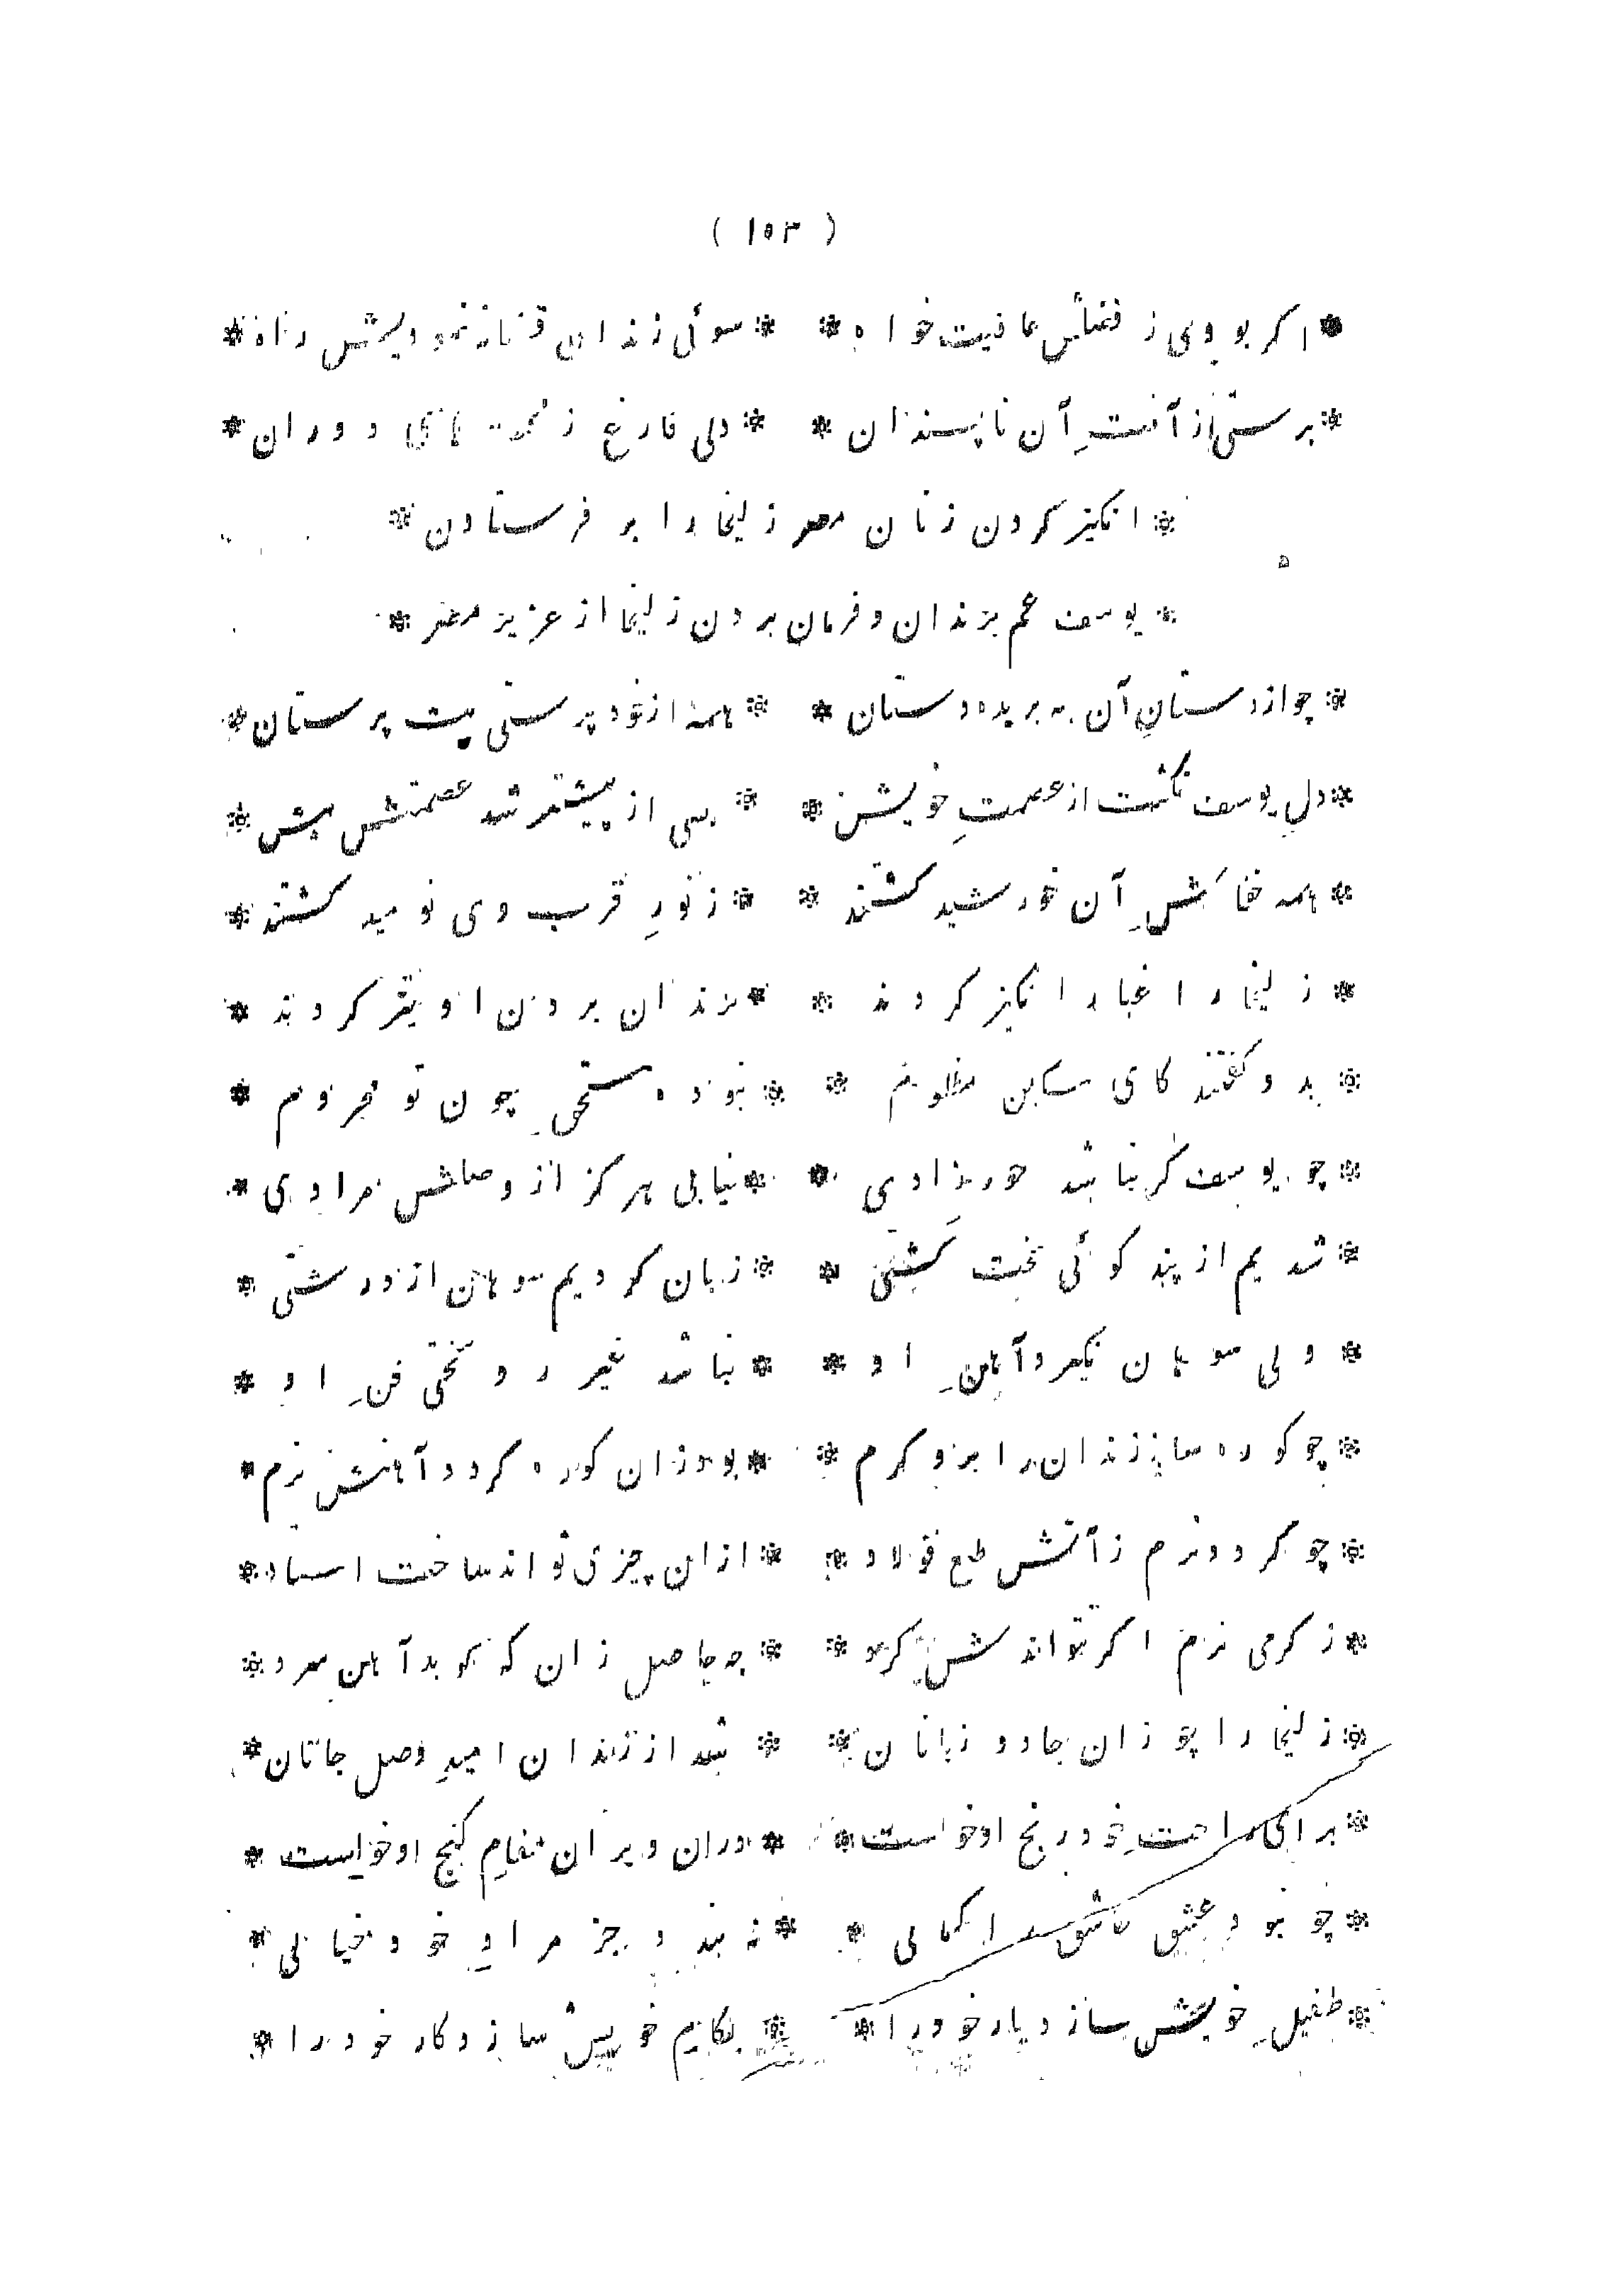 ( ۱۵۳ )
* اکر بودی ز فضلش عافیت خواه * * سوئی زندان قضا ننمودیش راه *
* برستی از آفتِ آن ناپسندان * * دلی فارغ ز محنت هائی دوران *
* انکیز کردن زنان مصر زلیخا را بر فرستادن *
* یوسف عم بزندان و فرمان بردن زلیخا از عزیز مصر *
* چو از دستانِ آن ببریده دستان * * همه از خود پرستی بت پرستان *
* دلِ یوسف نکشت از عصمتِ خویش * * بسی از پیشتر شد عصمتش بیش *
* همه خفاشِ آن خورشید کشتند * * ز نورِ قرب وی نومید کشتند *
* زلیخا را غبار انکیز کردند * * بزندان بردن او تیز کردند *
* بدو کفتند کای مسکین مظلوم * * نبوده مستحقِ چون تو محروم *
* چو یوسف کر نباشد حورزادی * * نیابی هرکز از وصلش مرادی *
* شدیم از پند کوئی سخت کشتی * * زبان کردیم سوهان از درشتی *
* ولی سوهان نکیرد آهنِ او * * نباشد غیر رو سختی فنِ او *
* چو کوره ساز زندان را برو کرم * * بود زان کوره کردد آهنش نرم *
* چو کردد نرم ز آتش طبع فولاد * * از ان چیزی تواند ساخت استاد *
* ز کرمی نرم اکر نتواندش کرد * * چه حاصل زان که کوبد آهن سرد *
* زلیخا را چو زان جادو زبانان * * شد از زندان امیدِ وصل جانان *
* برائی راحتِ خود رنج او خواست * * دران ویران مقامِ کنج او خواست *
* چو نبود عشقِ عاشق را کمالی * * نه بندد جز مرادِ خود خیالی *
* طفیلِ خویش سازد یار خود را * * بکامِ خویش سازد کار خود را *